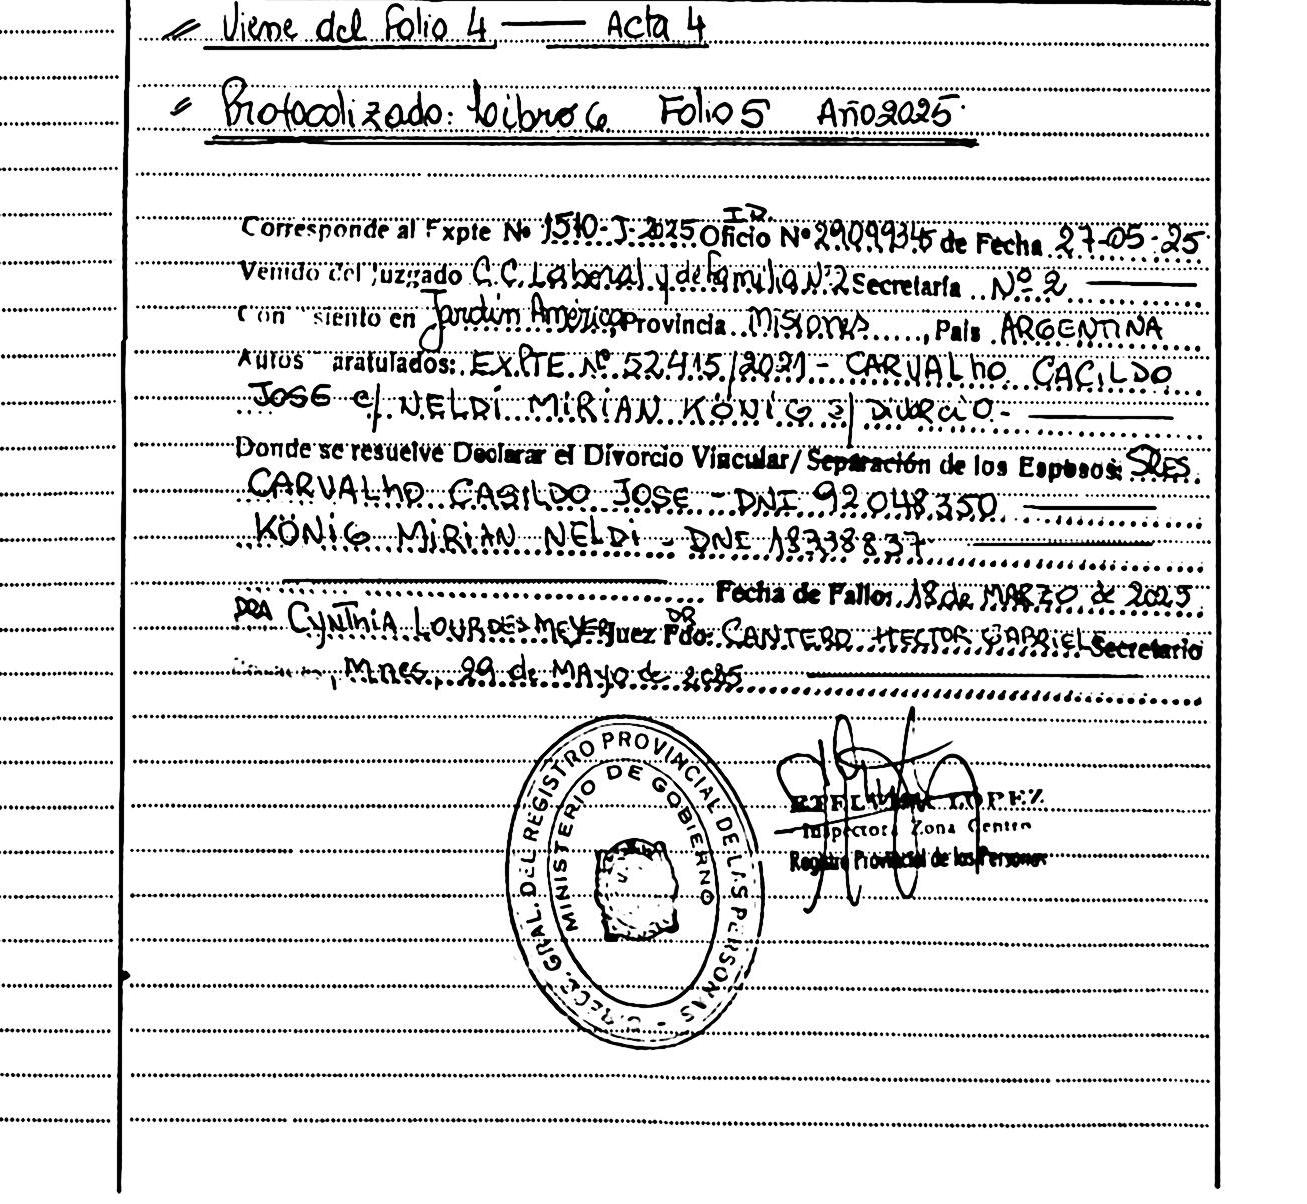 Viene del Folio 4 —— Acta 4
Protocolizado: Libro 6 Folio 5 Año 2025
I.D.
Corresponde al Expte Nº 1510-J-2025 Oficio Nº 29099345 de Fecha 27-05-25
Venido del Juzgado C.C. Laboral y de Familia Nº 2 Secretaría Nº 2
Con siento en Jardín América, Provincia Misiones, País ARGENTINA
Autos aratulados: EXPTE Nº 52415/2021 - CARVALHO CACILDO
JOSE c/ NELDI MIRIAN KÖNIG s/ Divorcio.-
Donde se resuelve Declarar el Divorcio Vincular/Separación de los Esposos: SRES
CARVALHO CASILDO JOSE - DNI 92048350
KÖNIG MIRIAN NELDI - DNI 18338837
Fecha de Fallo: 18 de MARZO de 2025
DRA CYNTHIA LOURDES MEYER Juez Fdo: DR CANTERO HECTOR GABRIEL Secretario
, Mnes, 29 de MAYO de 2025
DIRECC. GRAL. DEL REGISTRO PROVINCIAL DE LAS PERSONAS -
MINISTERIO DE GOBIERNO
LOPEZ
Inspectora Zona Centro
Registro Provincial de las Personas